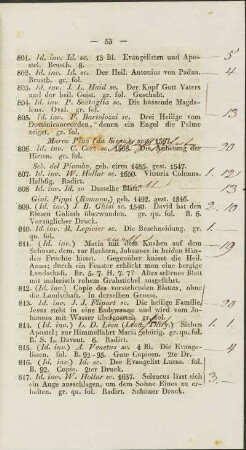 — 53 —
801. Id. inv. Id. sc. 13 Bl. Evangelisten und Apo-
stel. Brustb. 8.
802. Id. inv. Id. sc. Der Heil. Antonius von Padua.
Brustb. gr. fol.
803. Id. inv. J. L. Haid sc. Der Kopf Gott Vaters
und der heil. Geist. gr. fol. Geschabt.
804. Id. inv. P. sc. Die büssende Magda-
lena. Oval. gr. fol.
805. Id. inv. F. Bartolozzi sc. Drei Heilige vom
Dominicanerorden, denen ein Engel die Palme
zeiget. gr. fol.
Marco Pino
806. Id. inv. C. Cort sc. 1568. Anbetung der
Hirten. gr. fol.
Seb. del Piombo, geb. circa 1485. gest. 1547.
807. Id. inv. W. Hollar sc. 1650. Vittoria Colonna.
Halbfig. Radirt.
808. Id. inv. Id. sc Dasselbe Blatt.
Giul. Pippi (Romano,) geb. 1492. gest. 1546.
809. (Id. inv.) J. B. Ghisi sc. 1540. David hat den
Riesen Goliath überwunden. gr. qu. fol. B. 6.
Vorzüglicher Druck.
810. Id. inv. B. Lepicier sc. Die Beschneidung. gr.
qu. fol.
811. (Id. inv.) Maria mit dem Knaben auf dem
Schoose, dem, zur Rechten, Johannes in beiden Hän-
den Früchte bietet. Gegenüber kniet die Heil.
Anna; durch ein Fenster erblickt man eine bergige
Landschaft. Br. 5. 7. H. 7. 7? Altes schönes Blatt
mit malerisch rohem Grabstichel ausgeführt.
812. (Id. inv.) Copie des vorstehenden Blattes, ohne
die Landschaft. In derselben Grösse.
813. Id. inv. J. J. Flipart sc. Die heilige Familie;
Jesus steht in einer Badewanne und wird vom Jo-
hannes mit Wasser übergossen. gr. fol.
814. (Id. inv.) L. D. Lion (Léon Davy.) Sieben
Apostel; zur Himmelfahrt Mariä gehörig. gr. qu. fol.
B. S. L. Davent. 6. Radirt.
815. (Id. inv.) A. Venetus sc. 4 Bl. Die Evange-
listen. fol. B. 92-95. Gute Copieen. 2te Dr.
816. (Id. inv.) Id. sc. Der Evangelist Lucas. fol.
B. 92. Copie. 2ter Druck.
817. Id. inv. W. Hollar sc. 1637. Seleucus lässt sich
ein Auge ausschlagen, um dem Sohne Eines zu er-
halten. gr. qu. fol. Radirt. Schöner Druck.